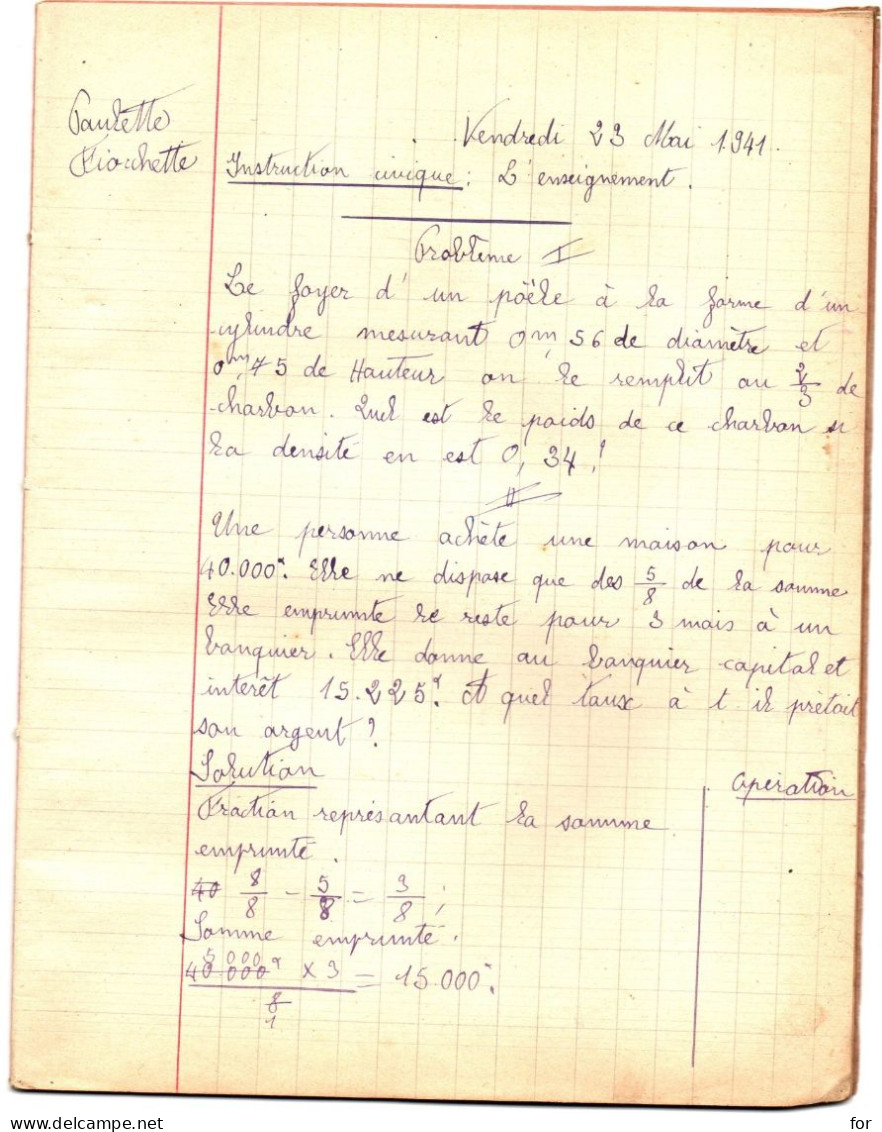 Paulette
Vendredi 23 Mai 1941.
Instruction civique : L'enseignement.
Problème I
Le foyer d'un pöêle à la forme d'un
cylindre mesurant 0m,56 de diamètre et
0m,75 de Hauteur on le remplit au 2/3 de
charbon. Quel est le poids de ce charbon si
la densité en est 0,34 ?
II
Une personne achète une maison pour
40.000f. Elle ne dispose que des 5/8 de la somme
Elle emprunte le reste pour 3 mois à un
banquier. Elle donne au banquier capital et
interêt 15.225f. A quel taux à t il prêtait
son argent ?
Solution
Opération
Fraction représantant la somme
emprunté.
40 8/8 - 5/8 = 3/8 ;
Somme emprunté.
5 000
40 000f x 3 = 15.000f.
8
1
for